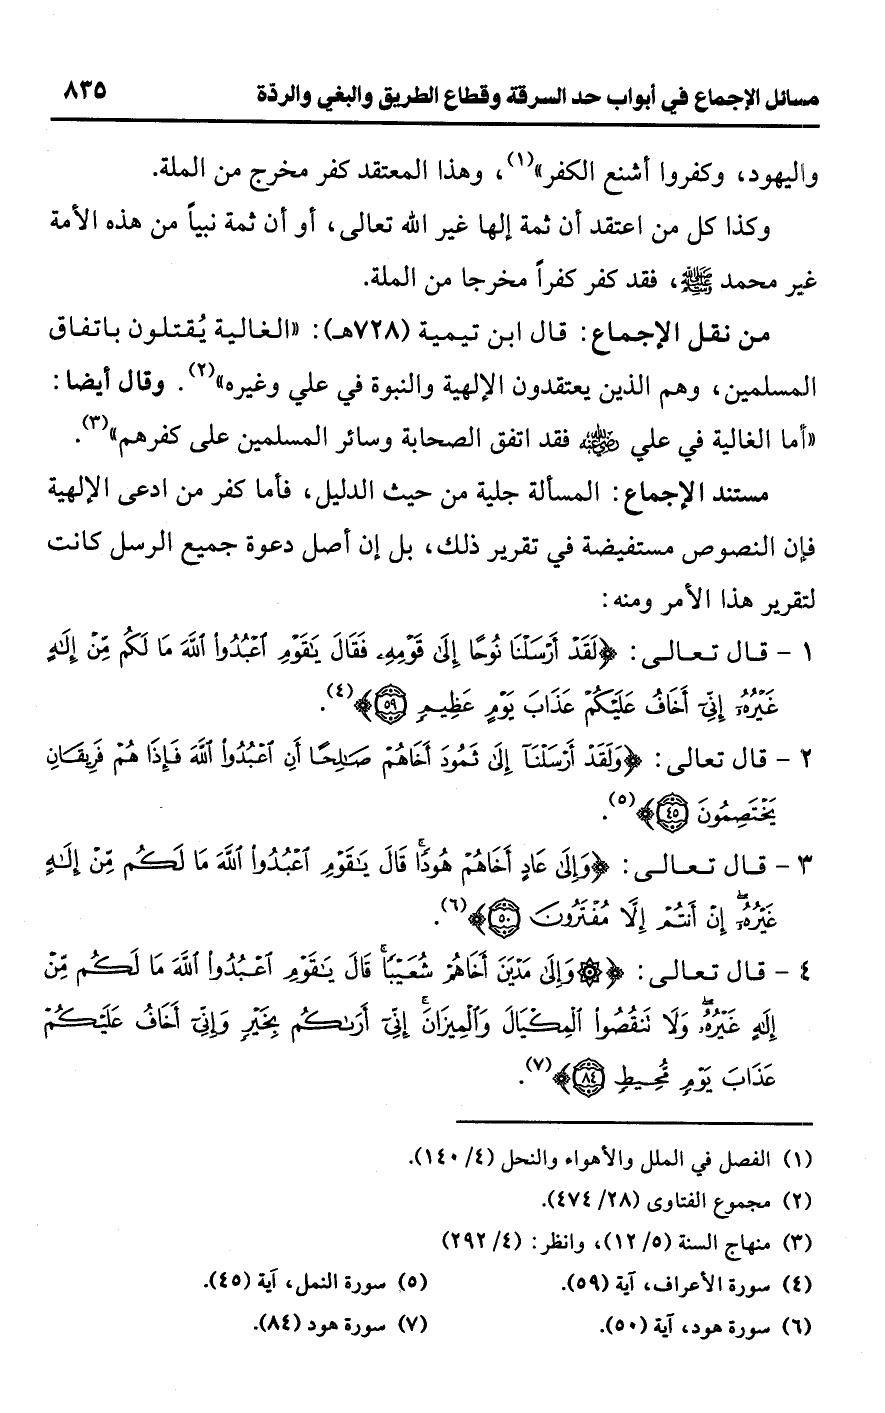 مسائل الإجماع في أبواب حد السرقة وقطاع الطريق والبغي والردّة ٨٣٥
واليهود، وكفروا أشنع الكفر»(١)، وهذا المعتقد كفر مخرج من الملة.
وكذا كل من اعتقد أن ثمة إلها غير الله تعالى، أو أن ثمة نبياً من هذه الأمة
غير محمد ﷺ، فقد كفر كفراً مخرجا من الملة.
من نقل الإجماع: قال ابن تيمية (٧٢٨هـ): «الغالية يُقتلون باتفاق
المسلمين، وهم الذين يعتقدون الإلهية والنبوة في علي وغيره»(٢). وقال أيضا:
«أما الغالية في علي رضي الله عنه فقد اتفق الصحابة وسائر المسلمين على كفرهم»(٣).
مستند الإجماع: المسألة جلية من حيث الدليل، فأما كفر من ادعى الإلهية
فإن النصوص مستفيضة في تقرير ذلك، بل إن أصل دعوة جميع الرسل كانت
لتقرير هذا الأمر ومنه:
١ - قال تعالى: ﴿لَقَدْ أَرْسَلْنَا نُوحًا إِلَىٰ قَوْمِهِۦ فَقَالَ يَٰقَوْمِ ٱعْبُدُوا۟ ٱللَّهَ مَا لَكُم مِّنْ إِلَٰهٍ
غَيْرُهُۥٓ إِنِّىٓ أَخَافُ عَلَيْكُمْ عَذَابَ يَوْمٍ عَظِيمٍ ٥٩﴾(٤).
٢ - قال تعالى: ﴿وَلَقَدْ أَرْسَلْنَآ إِلَىٰ ثَمُودَ أَخَاهُمْ صَٰلِحًا أَنِ ٱعْبُدُوا۟ ٱللَّهَ فَإِذَا هُمْ فَرِيقَانِ
يَخْتَصِمُونَ ٤٥﴾(٥).
٣ - قال تعالى: ﴿وَإِلَىٰ عَادٍ أَخَاهُمْ هُودًا ۚ قَالَ يَٰقَوْمِ ٱعْبُدُوا۟ ٱللَّهَ مَا لَكُم مِّنْ إِلَٰهٍ
غَيْرُهُۥٓ ۖ إِنْ أَنتُمْ إِلَّا مُفْتَرُونَ ٥٠﴾(٦).
٤ - قال تعالى: ﴿۞ وَإِلَىٰ مَدْيَنَ أَخَاهُمْ شُعَيْبًا ۚ قَالَ يَٰقَوْمِ ٱعْبُدُوا۟ ٱللَّهَ مَا لَكُم مِّنْ
إِلَٰهٍ غَيْرُهُۥ ۖ وَلَا تَنقُصُوا۟ ٱلْمِكْيَالَ وَٱلْمِيزَانَ ۚ إِنِّىٓ أَرَىٰكُم بِخَيْرٍ وَإِنِّىٓ أَخَافُ عَلَيْكُمْ
عَذَابَ يَوْمٍ مُّحِيطٍ ٨٤﴾(٧).
(١) الفصل في الملل والأهواء والنحل (٤/ ١٤٠).
(٢) مجموع الفتاوى (٢٨/ ٤٧٤).
(٣) منهاج السنة (٥/ ١٢)، وانظر: (٤/ ٢٩٢)
(٤) سورة الأعراف، آية (٥٩). (٥) سورة النمل، آية (٤٥).
(٦) سورة هود، آية (٥٠). (٧) سورة هود (٨٤).